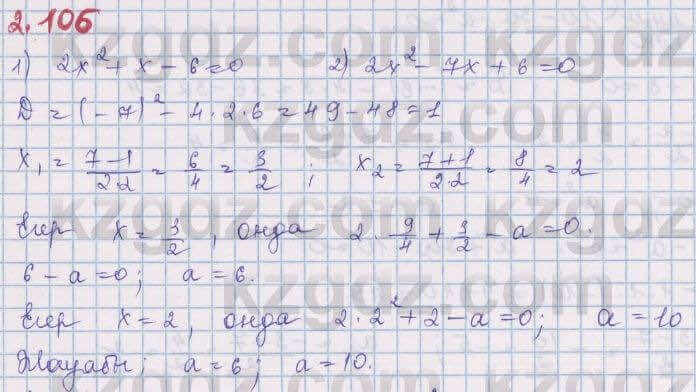 2.106
1) 2x² + x − 6 = 0   2) 2x² − 7x + 6 = 0
D = (−7)² − 4·2·6 = 49 − 48 = 1
x₁ = (7−1)/(2·2) = 6/4 = 3/2 ; x₂ = (7+1)/(2·2) = 8/4 = 2
Егер x = 3/2, онда 2·9/4 + 3/2 − a = 0.
6 − a = 0; a = 6.
Егер x = 2, онда 2·2² + 2 − a = 0; a = 10
Жауабы: a = 6; a = 10.
kzgdz.com